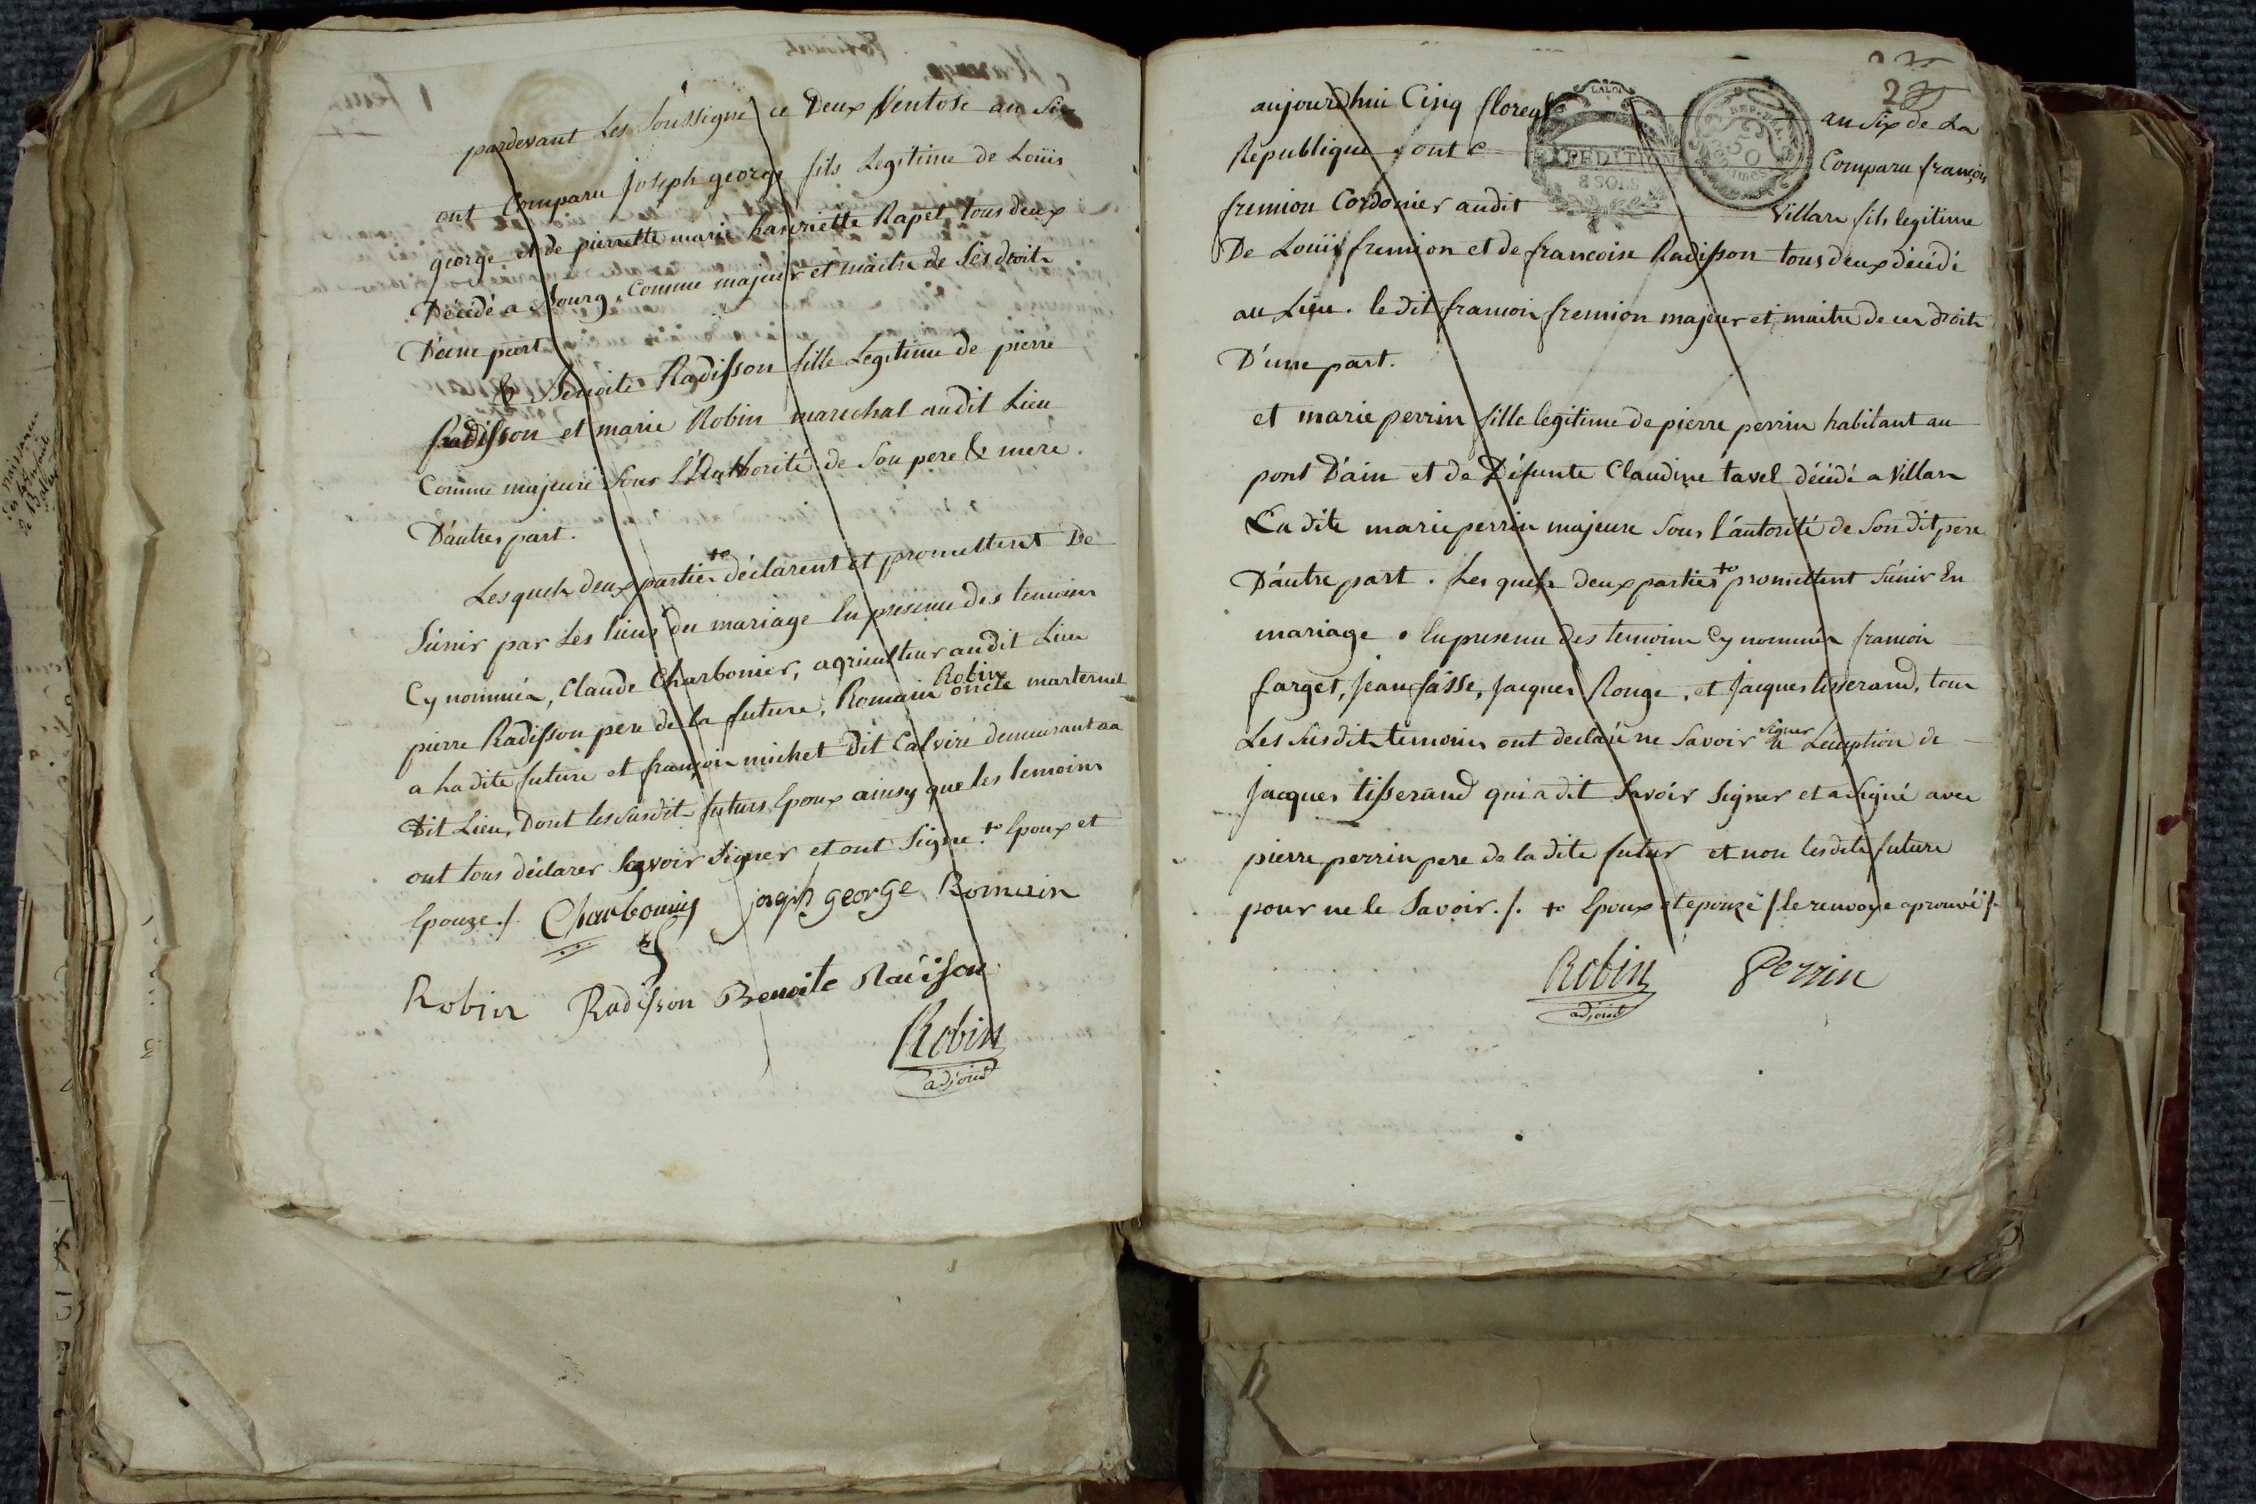 pardevant Les Soussigné ce Deux Ventose an Six
ont Comparu joseph george fils Legitime de Loüis
george et de pierrette marie hanriette Rapet tous deux
Décédé a Bourg, Comme majeur et maitre de Ses droits
D'une part
& Benoite Radisson fille Legitime de pierre
Radisson et marie Robin marechal audit Lieu
Comme majeure Sous L'Authorité de Son pere & mere.
D'autres part.
Lesquels deux parties +o déclarent et promettent De
S'unir par Les liens du mariage En presence des temoins
Cy nommés, Claude Charbonier, agriculteur audit Lieu
pierre Radisson pere de la future, Romain Robin oncle marternel
a La dite future et françois michet Dit Calviré demeurant au
Dit Lieu, Dont les Susdits futurs Epoux ainsy que les temoins
ont tous déclarer Savoir Signer et ont Signe. +o Epoux et
Epouze ./. Charbonier joseph george Romain
Robin Radisson Benoite Radison
Robin
adjoint
225
aujourdhui Cinq floreal an Six de La
Republique ont C Comparu françois
fremion Cordonier audit Villars fils legitime
De Loüis fremion et de francoise Radisson tous deux décédé
au Lieu. le dit francois fremion majeur et maitre de ces droits
D'une part.
et marie perrin fille legitime de pierre perrin habitant au
pont D'ain et de Défunte Claudine tavel décédé a Villars
La dite marie perrin majeure Sous l'autorité de Son dit pere
D'autre part. Les quels deux parties +o promettent S'unir En
mariage. En presence des temoins Cy nommés francois
farget, jean faisse, jacques Rouge, et jacques tisserand, tous
Les Susdits temoins ont declaré ne Savoir Signer a L'exeption de
jacques tisserand qui a dit Savoir Signer et a Signé avec
pierre perrin pere de la dite futur et non lesdits future
pour ne le Savoir ./. +o Epoux et epouze / le renvoye aprouvé /.
Robin Perrin
adjoint
LA LOI
EXPEDITION
8 SOLS
50